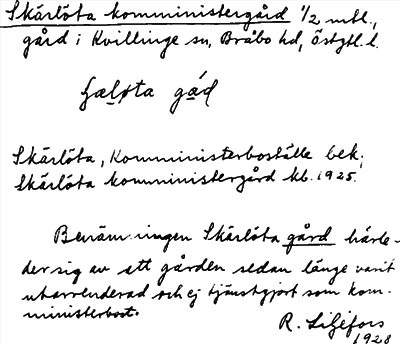 Skärlöta komministergård 1/2 mtl.,
gård i Kvillinge sn, Bråbo hd, Östgtl. l.
gård
Skärlöta, Komministerboställe bek.
Skärlöta komministergård kb. 1925.
Benämningen Skärlöta gård härle-
der sig av att gården sedan länge varit
utarrenderad och ej tjänstgjort som kom-
ministerbost.
R. Liljefors
1928